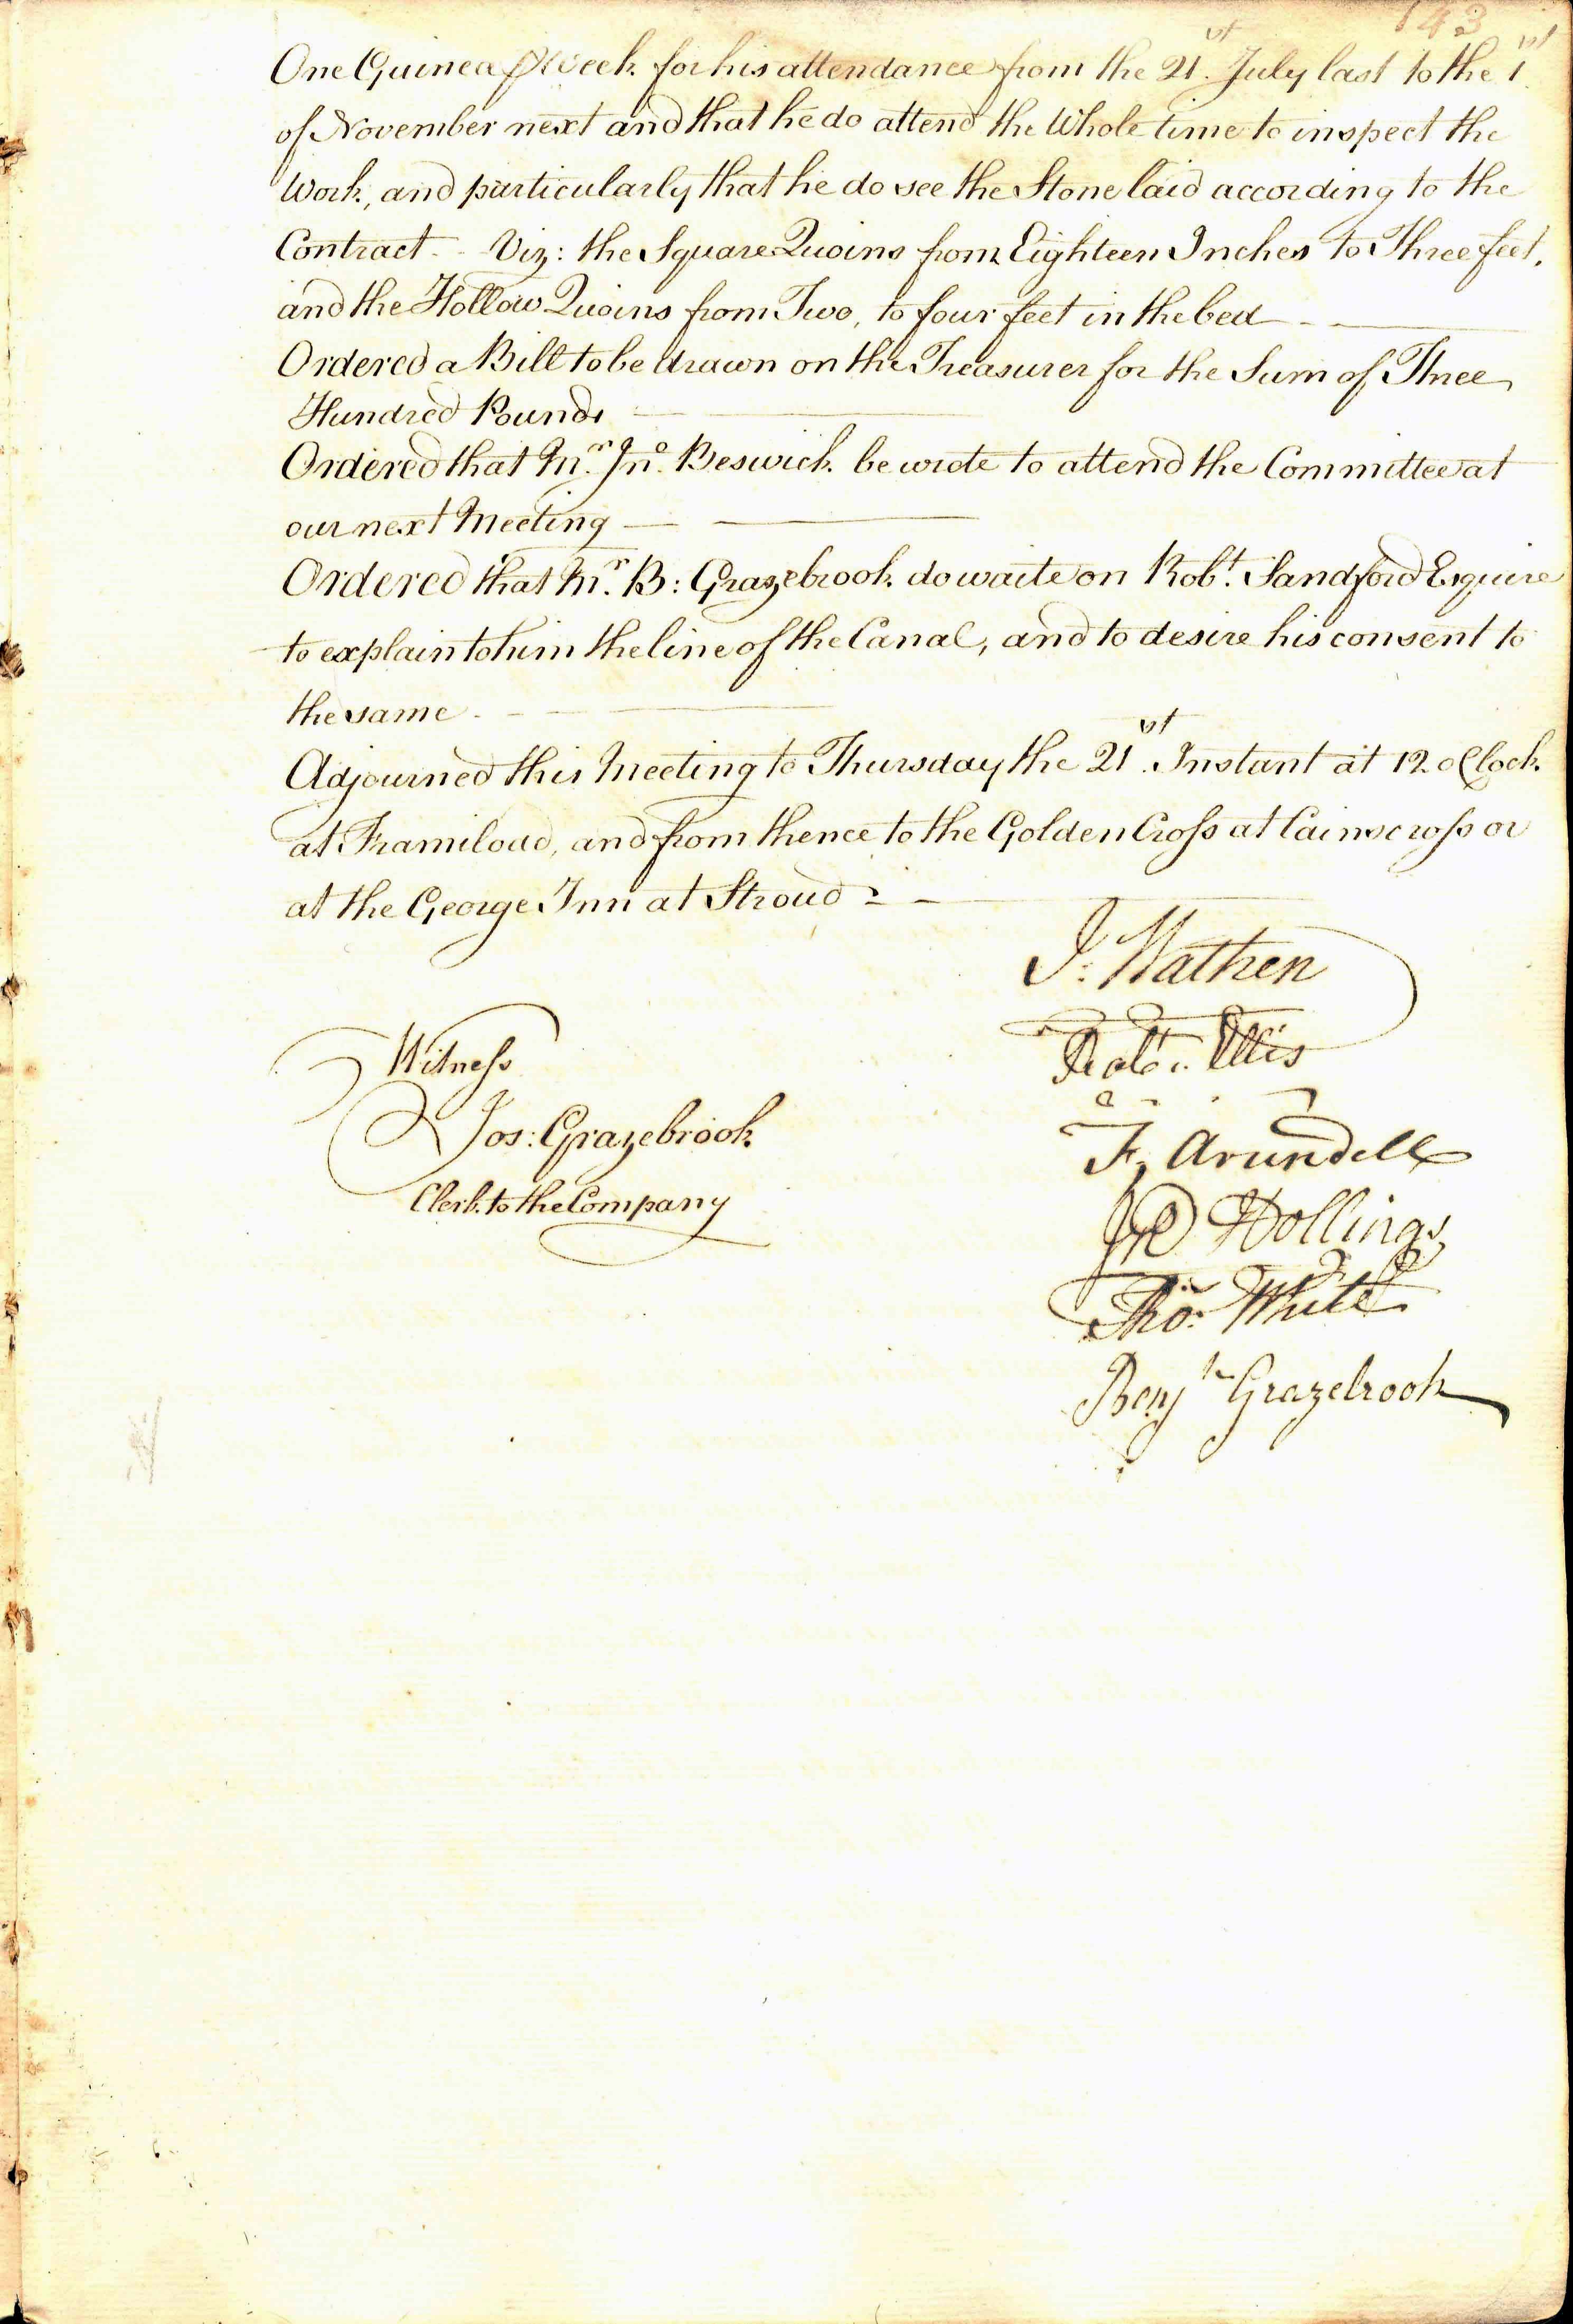 143
One Guinea ⅌ Week for his attendance from the 21.st July last to the 1st
of November next and that he do attend the Whole time to inspect the
Work, and particularly that he do see the Stone laid according to the
Contract - - Viz: the Square Quoins from Eighteen Inches to Three feet,
and the Hollow Quoins from Two, to four feet in the bed - —
Ordered a Bill to be drawn on the Treasurer for the Sum of Three
Hundred Pounds — —
Ordered that Mr. Jno. Beswick be wrote to attend the Committee at
our next Meeting — —
Ordered that Mr. B: Grazebrook do waite on Robt. Sandford Esquire
to explain to him the line of the Canal, and to desire his consent to
the same - - —
Adjourned this Meeting to Thursday the 21.st Instant at 12 o Clock
at Framiload, and from thence to the Golden Cross at Cainscross or
at the George Inn at Stroud - —
J: Wathen
Witness
Robt: Ellis
Jos: Grazebrook
F, Arundell
Clerk to the Company
Jno Hollings
Thos: White
Benjn Grazebrook